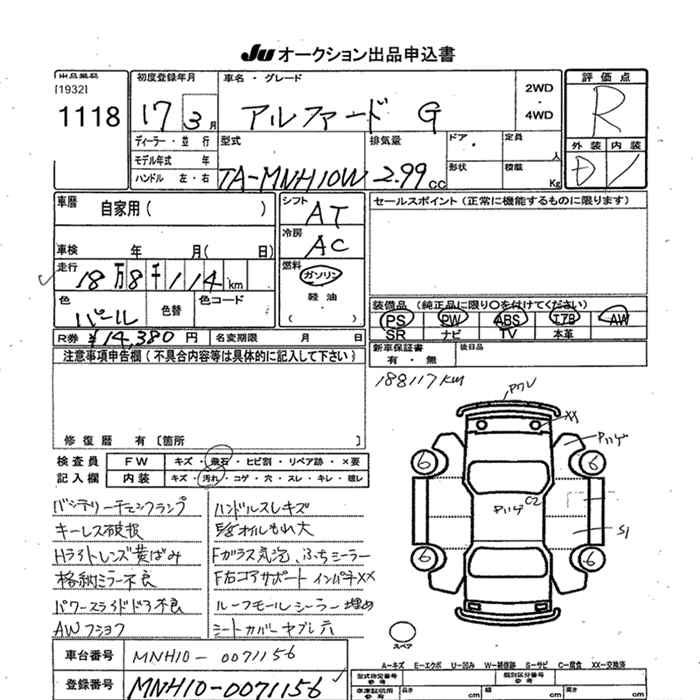 JU オークション出品申込書
出品番号 初度登録年月 車名・グレード 評価点
[1932] 2WD
1118 17 3月 アルファード G ・ R
4WD
ディーラー・並行 型式 排気量 ドア・ 定員 人 外装 内装
モデル年式 年 形状 積載 D
ハンドル 左・右 TA-MNH10W 2.99cc Kg
車暦 自家用( ) シフト AT セールスポイント(正常に機能するものに限ります)
冷房 AC
車検 年 月( 日)
走行 18万8千114km 燃料 ガソリン
軽油
( )
色 パール 色替 色コード 装備品(純正品に限り〇を付けてください)
PS PW ABS エアB AW
R券 ¥14,380円 名変期限 月 日 SR ナビ TV 本革
注意事項申告欄(不具合内容等は具体的に記入して下さい) 新車保証書 有・無 後日品
188117km
修復歴 有[箇所 ]
検査員 FW キズ・飛石・ヒビ割・リペア跡・×要
記入欄 内装 キズ・汚れ・コゲ・穴・スレ・キレ・穂レ
バッテリーチェンクランプ ハンドルスレキズ
キーレス破損 E/gオイルもれ大
Hライトレンズ黄ばみ Fガラス気泡、ふちシーラー
格納ミラー不良 F右コアサポートインパネXX
パワースライドドア不良 ルーフモールシーラー埋め
AWフショク シートカバーヤブレ穴
XX
6 6
C2
S1
6 6
スペア
車台番号 MNH10-0071156
A-キズ E-エクボ U-凹み W-補修跡 S-サビ C-腐食 XX-交換済
登録番号 MNH10-0071156
型式指定番号 類別区分番号
参考 長さ cm 幅 cm 高さ cm